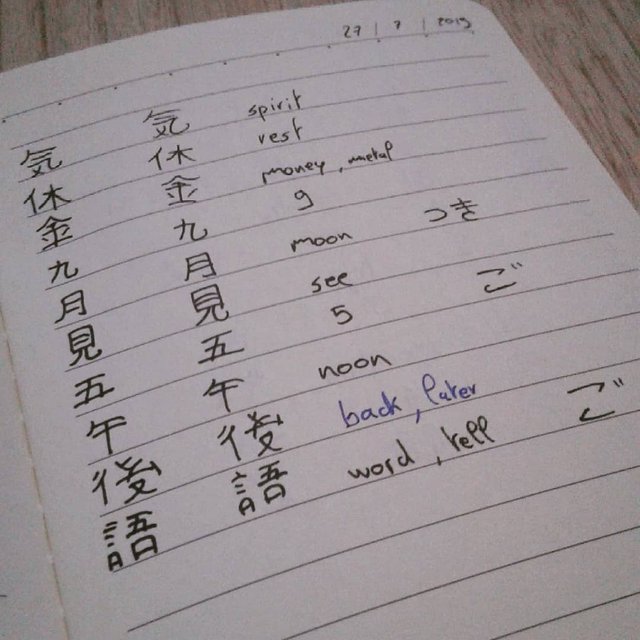 27 | 7 | 2019
気 気 spirit
休 休 rest
金 金 money, metal
九 九 9
月 月 moon つき
見 見 see
五 五 5 ご
午 午 noon
後 後 back, later
語 語 word, tell ご